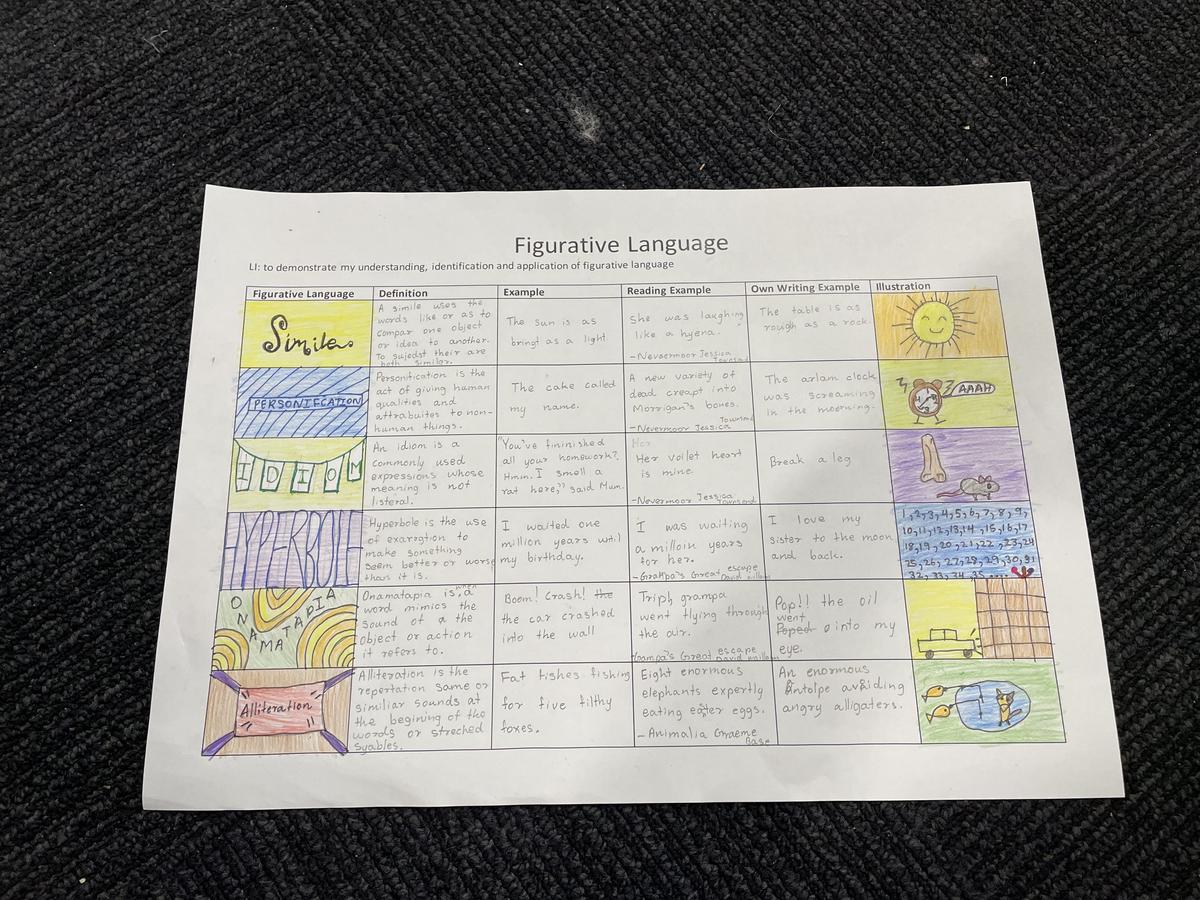 Figurative Language
LI: to demonstrate my understanding, identification and application of figurative language
Figurative Language
Definition
Example
Reading Example
Own Writing Example
Illustration
Simile
A simile uses the
words like or as to
compar one object
or idea to another.
To sujedst their are
both similar.
The sun is as
bringt as a light
She was laughing
like a hyena.
-Nevermoor Jessica
Townsend
The table is as
rough as a rock.
PERSONIFCATION
Personification is the
act of giving human
qualities and
attrabuites to non-
human things.
The cake called
my name.
A new variety of
dead creapt into
Morrigan's bones.
-Nevermoor Jessica
Townsend
The arlam clock
was screaming
in the moorning.
AAAH
IDIOM
An idiom is a
commonly used
expressions whose
meaning is not
listeral.
"You've fininished
all your homework?
Hmm. I smell a
rat here," said Mum.
Her
Her voilet heart
is mine.
-Nevermoor Jessica
Townsend
Break a leg
HYPERBOLE
Hyperbole is the use
of exaregtion to
make something
seem better or worse
than it is.
I waited one
million years until
my birthday.
I was waiting
a milloin years
for her.
-Grampa's Great escape
David
I love my
sister to the moon
and back.
1,2,3,4,5,6,7,8,9,
10,11,12,13,14,15,16,17
18,19,20,21,22,23,24
25,26,27,28,29,30,31
32,33,34,35....
ONAMATAPIA
Onamatapia is when a
word mimics the
sound of a the
object or action
it refers to.
Boom! Crash! the
the car crashed
into the wall
Triph grampa
went flying through
the air.
Grampa's Great escape
David
Pop!! the oil
went
Poped into my
eye.
Alliteration
Alliteration is the
repertation same or
similiar sounds at
the begining of the
words or streched
syables.
Fat fishes fishing
for five filthy
foxes.
Eight enormous
elephants expertly
eating easter eggs.
- Animalia Graeme
Base
An enormous
Antolpe avoiding
angry alligaters.